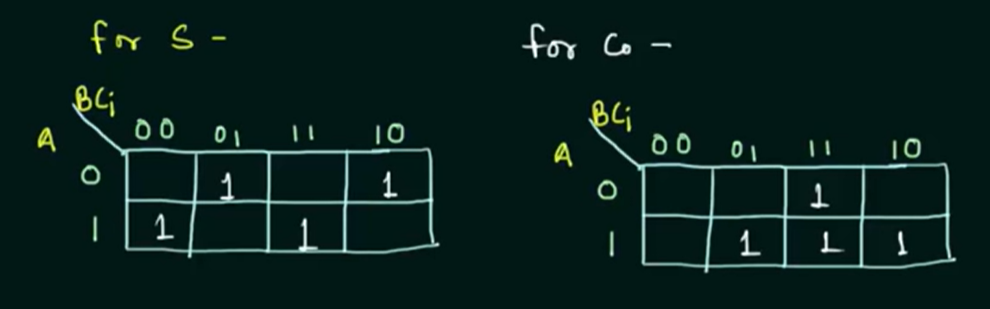 for S -
BCi
A
00 01 11 10
0 1 1
1 1 1
for Co -
BCi
A
00 01 11 10
0 1
1 1 1 1